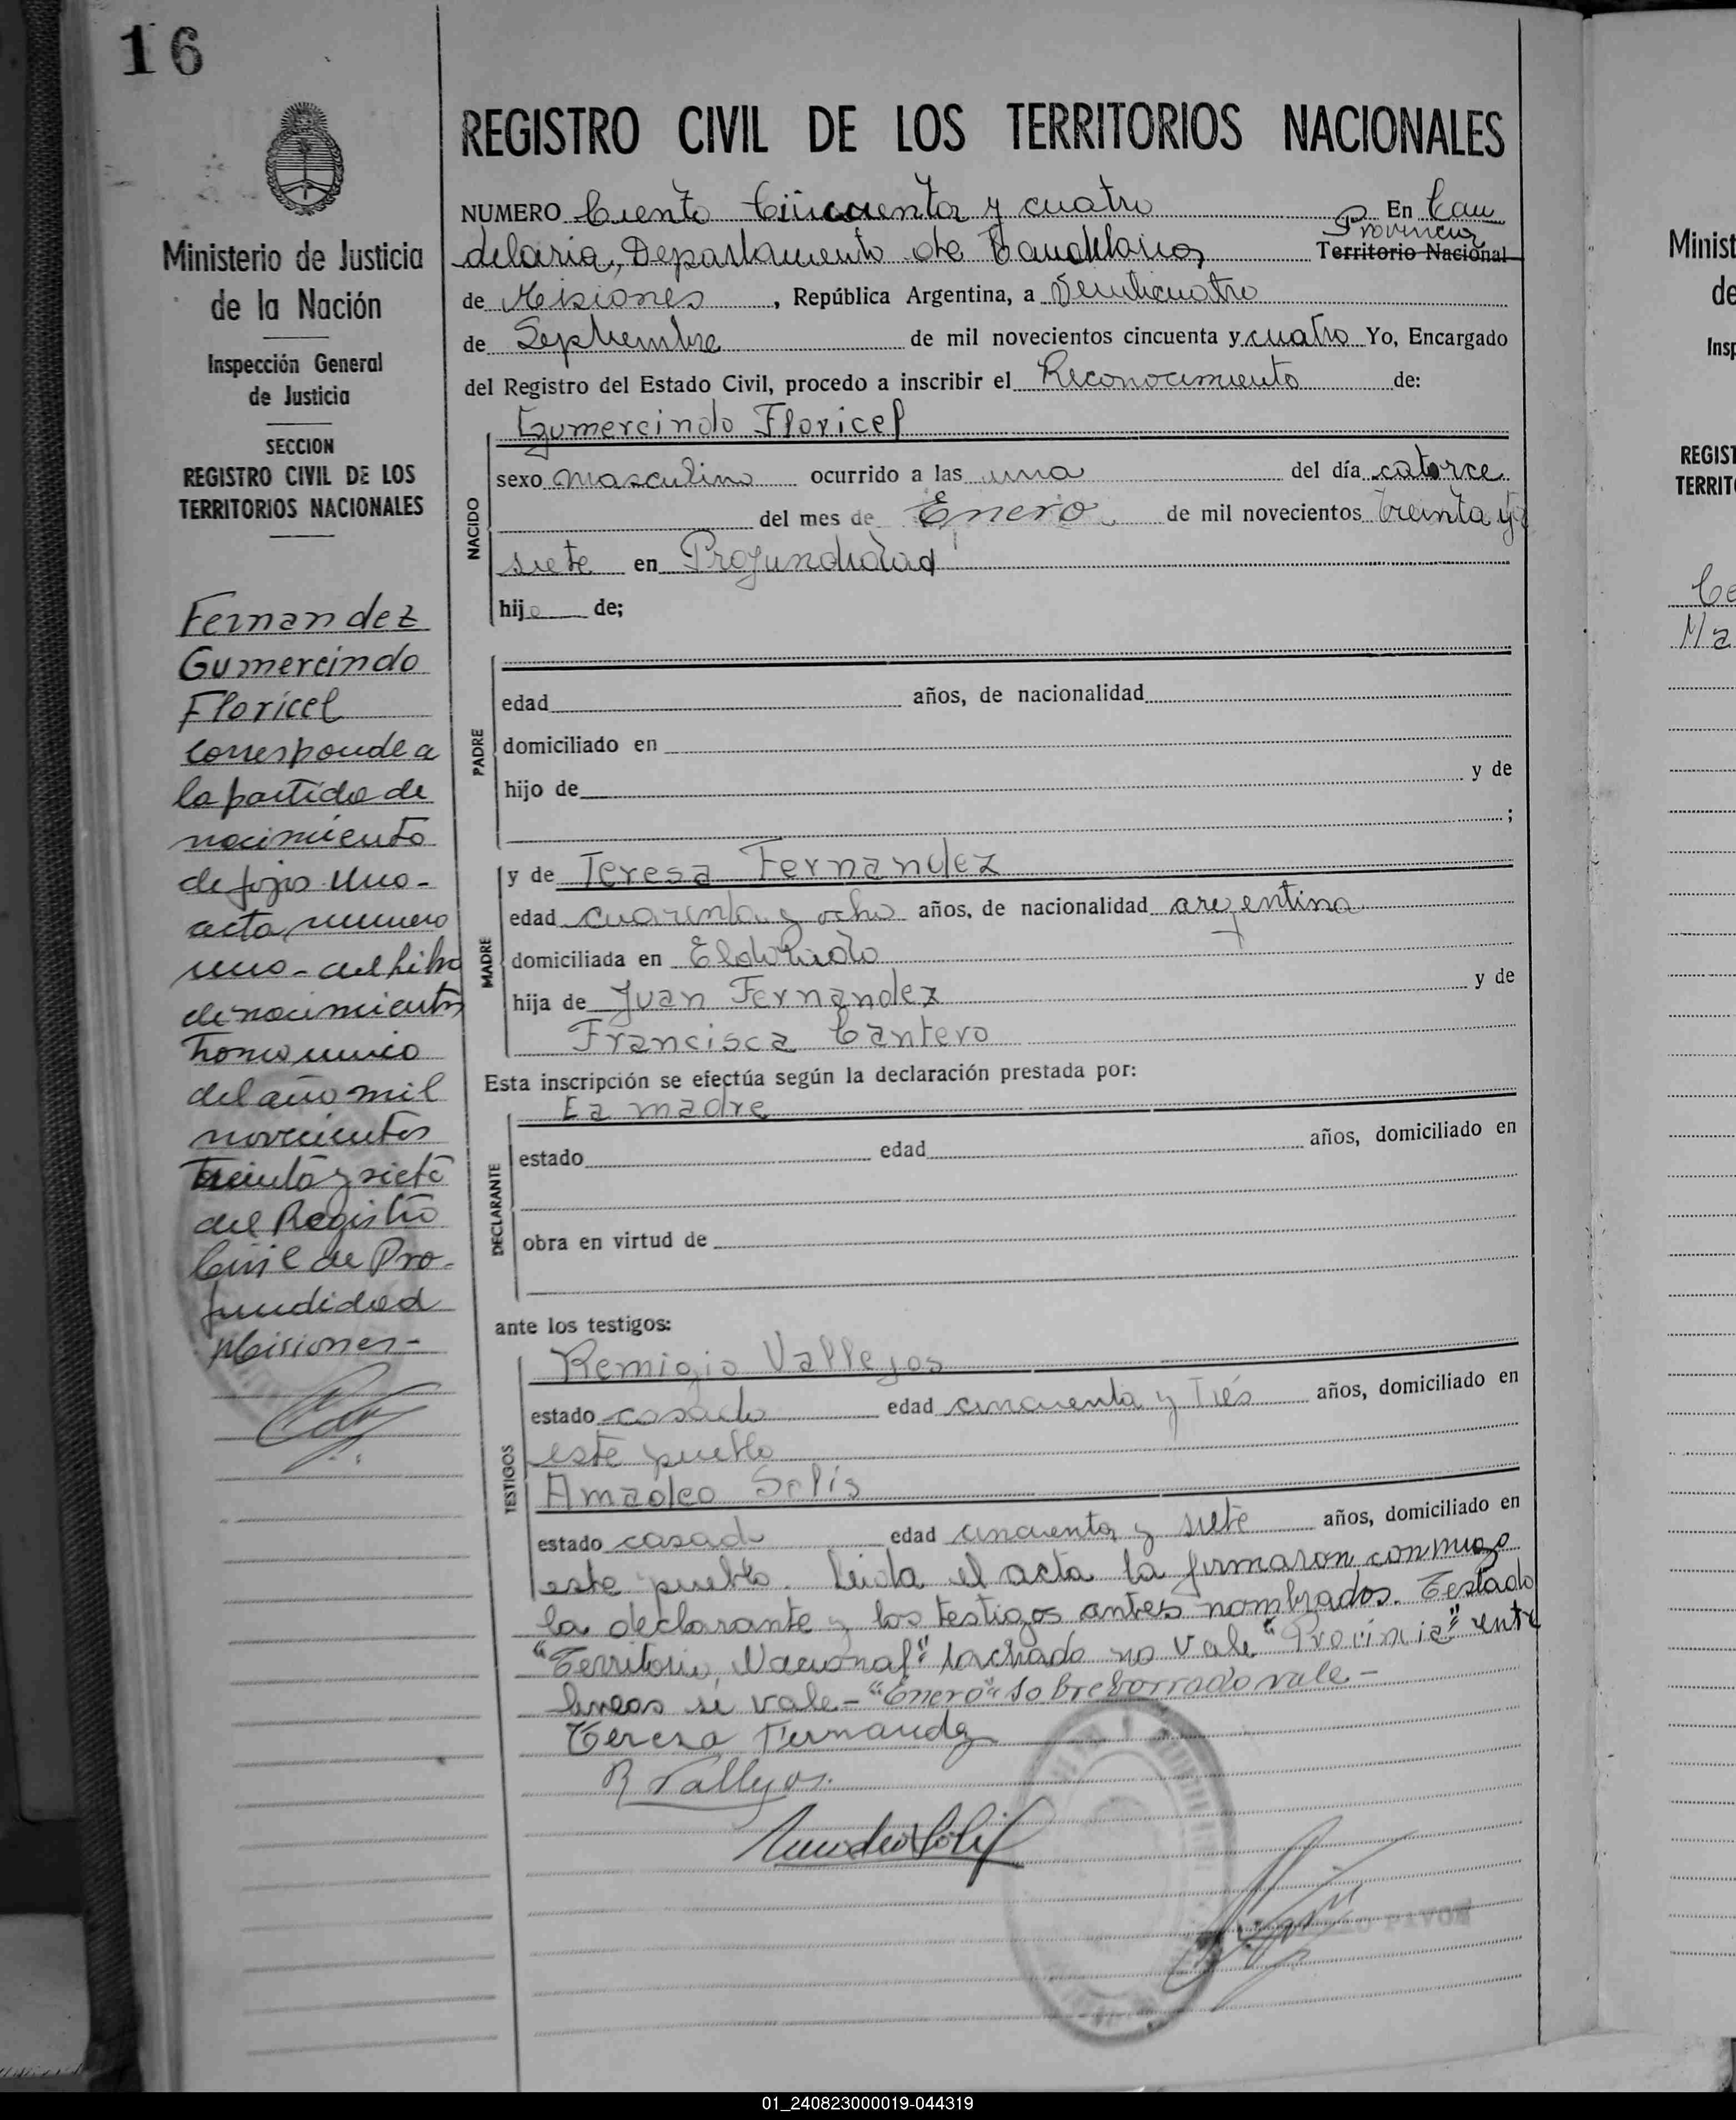 16
REGISTRO CIVIL DE LOS TERRITORIOS NACIONALES
NUMERO Ciento Cincuenta y cuatro En Can
Provincia
delaria, Departamento de Candelaria, Territorio Nacional
de Misiones, República Argentina, a Veinticuatro
de Septiembre de mil novecientos cincuenta y cuatro Yo, Encargado
del Registro del Estado Civil, procedo a inscribir el Reconocimiento de:
Gumercindo Floricel
NACIDO
sexo masculino ocurrido a las una del día catorce
del mes de Enero de mil novecientos treinta y
siete en Profundidad
hijo de;
PADRE
edad años, de nacionalidad
domiciliado en
hijo de y de
;
MADRE
y de Teresa Fernandez
edad cuarenta y ocho años, de nacionalidad argentina
domiciliada en Eldorado
hija de Juan Fernandez y de
Francisca Cantero
Esta inscripción se efectúa según la declaración prestada por:
La madre
DECLARANTE
estado edad años, domiciliado en
obra en virtud de
ante los testigos:
TESTIGOS
Remigio Vallejos
estado casado edad cincuenta y trés años, domiciliado en
este pueblo
Amadeo Solis
estado casado edad cincuenta y siete años, domiciliado en
este pueblo. Leida el acta la firmaron conmigo
la declarante y los testigos antes nombrados. Testado
"Territorio Nacional" tachado no vale "Provincia" entre
lineas si vale - "Enero" sobreborrado vale -
Teresa Fernandez
R Vallejos.
Amadeo Solis
PIVON
Ministerio de Justicia
de la Nación
Inspección General
de Justicia
SECCION
REGISTRO CIVIL DE LOS
TERRITORIOS NACIONALES
Fernandez
Gumercindo
Floricel
Corresponde a
la partida de
nacimiento
de fojas uno -
acta numero
uno - del libro
de nacimientos
tomo unico
del año mil
novecientos
treinta y siete
del Registro
Civil de Pro-
fundidad
Misiones -
Minist
de
Insp
REGIST
TERRIT
Ce
Ma
01_240823000019-044319